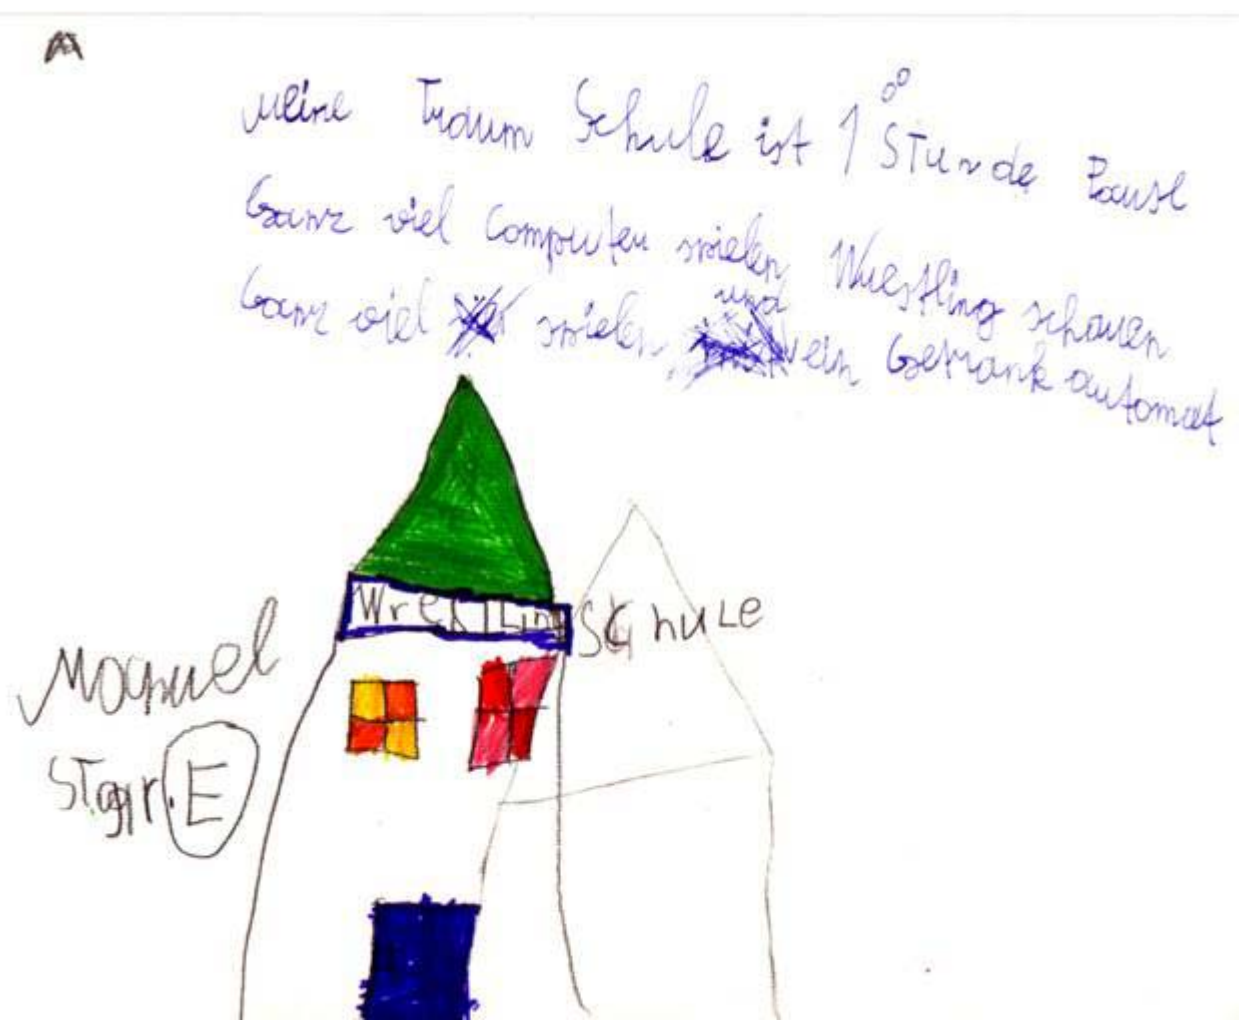 Meine Traum Schule ist 1 Stunde Pause
Ganz viel Computer spielen Wrestling schauen
Ganz viel spielen, und ein Getränk automat
Wrestling Schule
Manuel
E